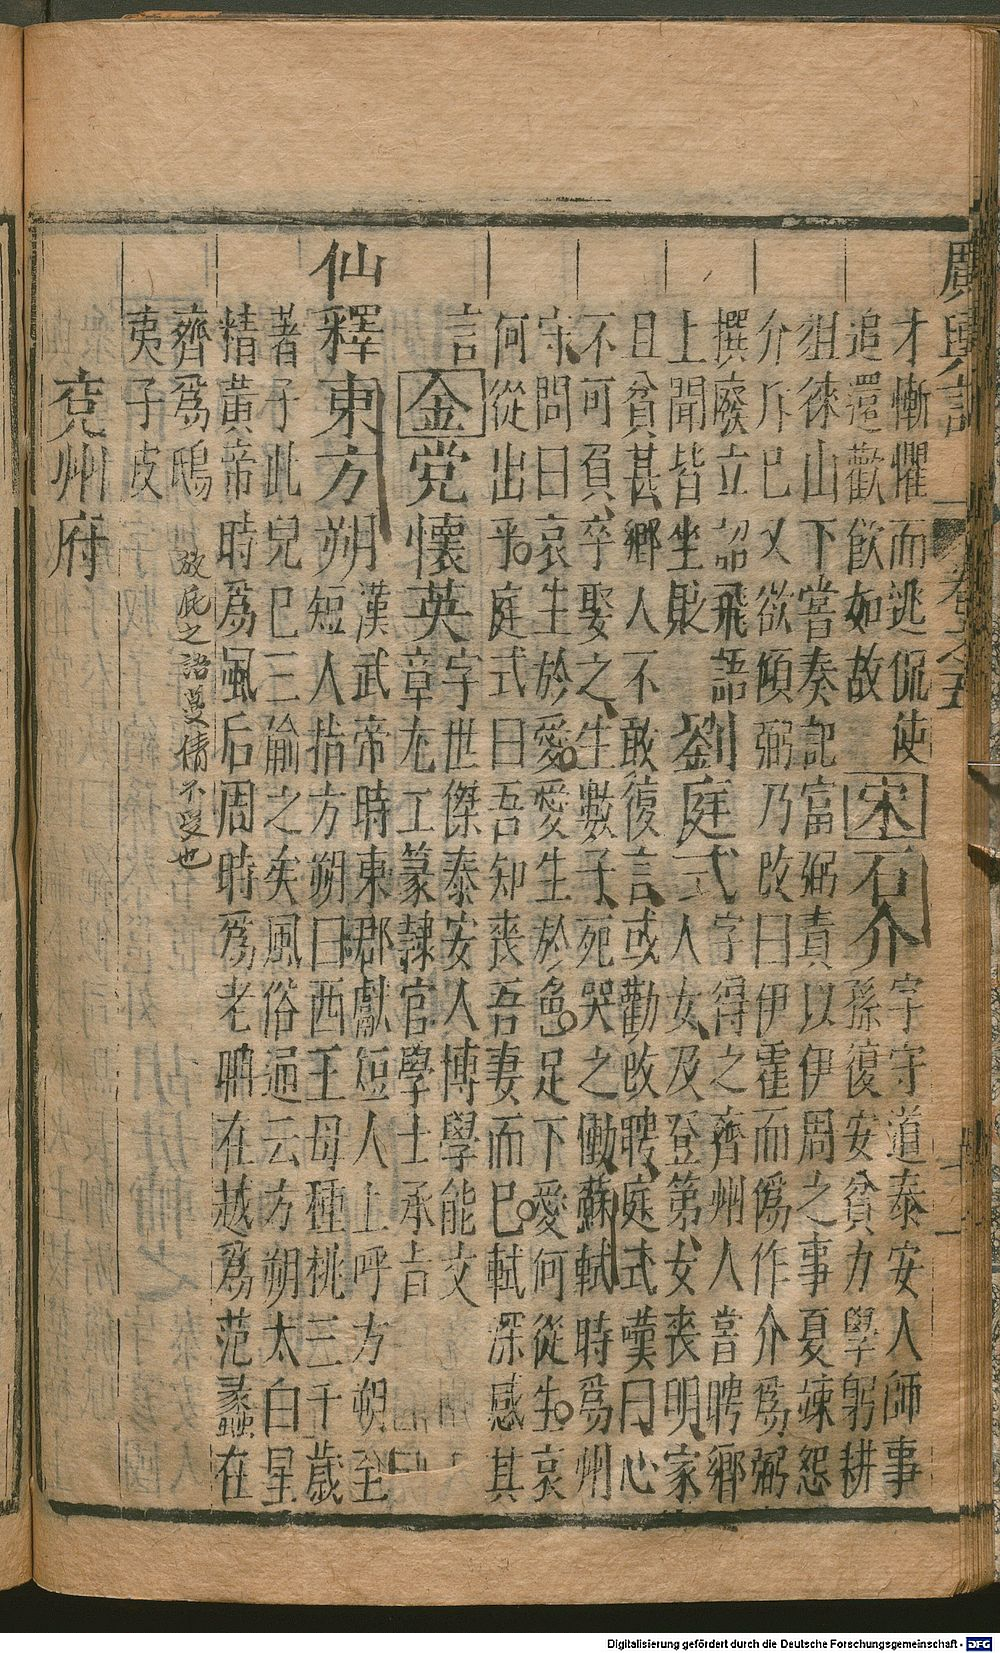 廣輿記 卷之五
才慚懼而逃侃使
追還歡飲如故
宋石介
字守道泰安人師事
孫復安貧力學躬耕
徂徠山下嘗奏記富弼責以伊周之事夏竦怨
介斥已又欲傾弼乃改曰伊霍而僞作介爲弼
撰廢立詔飛語
劉庭式
字得之齊州人嘗聘鄉
人女及登第女喪明家
上聞皆坐貶
且貧甚鄉人不敢復言或勸改聘庭式嘆曰心
不可負卒娶之生數子死哭之慟蘇軾時爲州
守問曰哀生於愛愛生於色足下愛何從生哀
何從出乎庭式曰吾知喪吾妻而已軾深感其
言
金党懷英
字世傑泰安人博學能文
章尤工篆隸官學士承旨
仙釋東方朔
漢武帝時東郡獻短人上呼方朔至
短人指方朔曰西王母種桃三千歲
著子此兒已三偷之矣風俗通云方朔太白星
精黃帝時爲風后周時爲老聃在越爲范蠡在
齊爲鴟
夷子皮
放屁之語曼倩不受也
兖州府
Digitalisierung gefördert durch die Deutsche Forschungsgemeinschaft - DFG